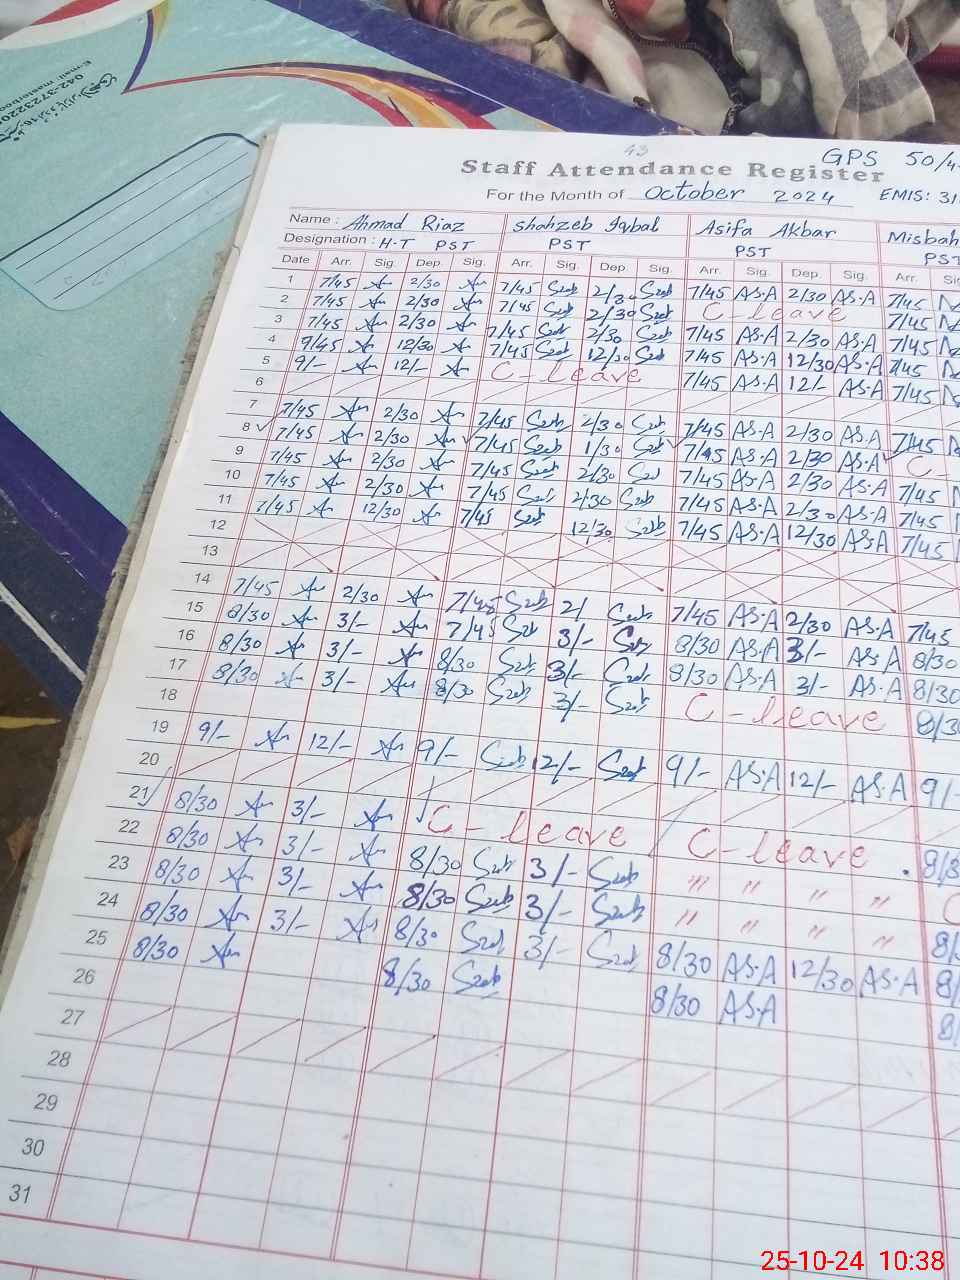 042-3723220
E-mail: masterboo
43
GPS 50/4
Staff Attendance Register
For the Month of October 2024 EMIS: 31
Name : Ahmad Riaz Shahzeb Iqbal Asifa Akbar Misbah
Designation : H.T PST PST PST PST
Date Arr. Sig. Dep. Sig. Arr. Sig. Dep. Sig. Arr. Sig. Dep. Sig. Arr. Sig.
1 7/45 2/30 7/45 Szub 2/30 Szub 7/45 AS.A 2/30 AS.A 7/45
2 7/45 2/30 7/45 Szub 2/30 Szub C-leave 7/45
3 7/45 2/30 7/45 Szub 2/30 Szub 7/45 AS.A 2/30 AS.A 7/45
4 9/45 12/30 7/45 Szub 12/30 Szub 7/45 AS.A 12/30 AS.A 7/45
5 9/- 12/- C-leave 7/45 AS.A 12/- AS.A 7/45
6
7 7/45 2/30 7/45 Szub 2/30 Szub 7/45 AS.A 2/30 AS.A 7/45
8 7/45 2/30 7/45 Szub 1/30 Szub 7/45 AS.A 2/30 AS.A C-
9 7/45 2/30 7/45 Szub 2/30 Szub 7/45 AS.A 2/30 AS.A 7/45
10 7/45 2/30 7/45 Szub 2/30 Szub 7/45 AS.A 2/30 AS.A 7/45
11 7/45 12/30 7/45 Szub 12/30 Szub 7/45 AS.A 12/30 AS.A 7/45
12
13
14 7/45 2/30 7/45 Szub 2/ Szub 7/45 AS.A 2/30 AS.A 7/45
15 8/30 3/- 7/45 Szub 3/- Szub 8/30 AS.A 3/- AS.A 8/30
16 8/30 3/- 8/30 Szub 3/- Szub 8/30 AS.A 3/- AS.A 8/30
17 8/30 3/- 8/30 Szub 3/- Szub C-leave 8/30
18
19 9/- 12/- 9/- Szub 12/- Szub 9/- AS.A 12/- AS.A 9/-
20
21 8/30 3/- C-leave C-leave 8/3
22 8/30 3/- 8/30 Szub 3/- Szub " " " " C
23 8/30 3/- 8/30 Szub 3/- Szub " " " " 8/
24 8/30 3/- 8/30 Szub 3/- Szub 8/30 AS.A 12/30 AS.A 8/
25 8/30 8/30 Szub 8/30 AS.A 8/
26
27
28
29
30
31
25-10-24 10:38